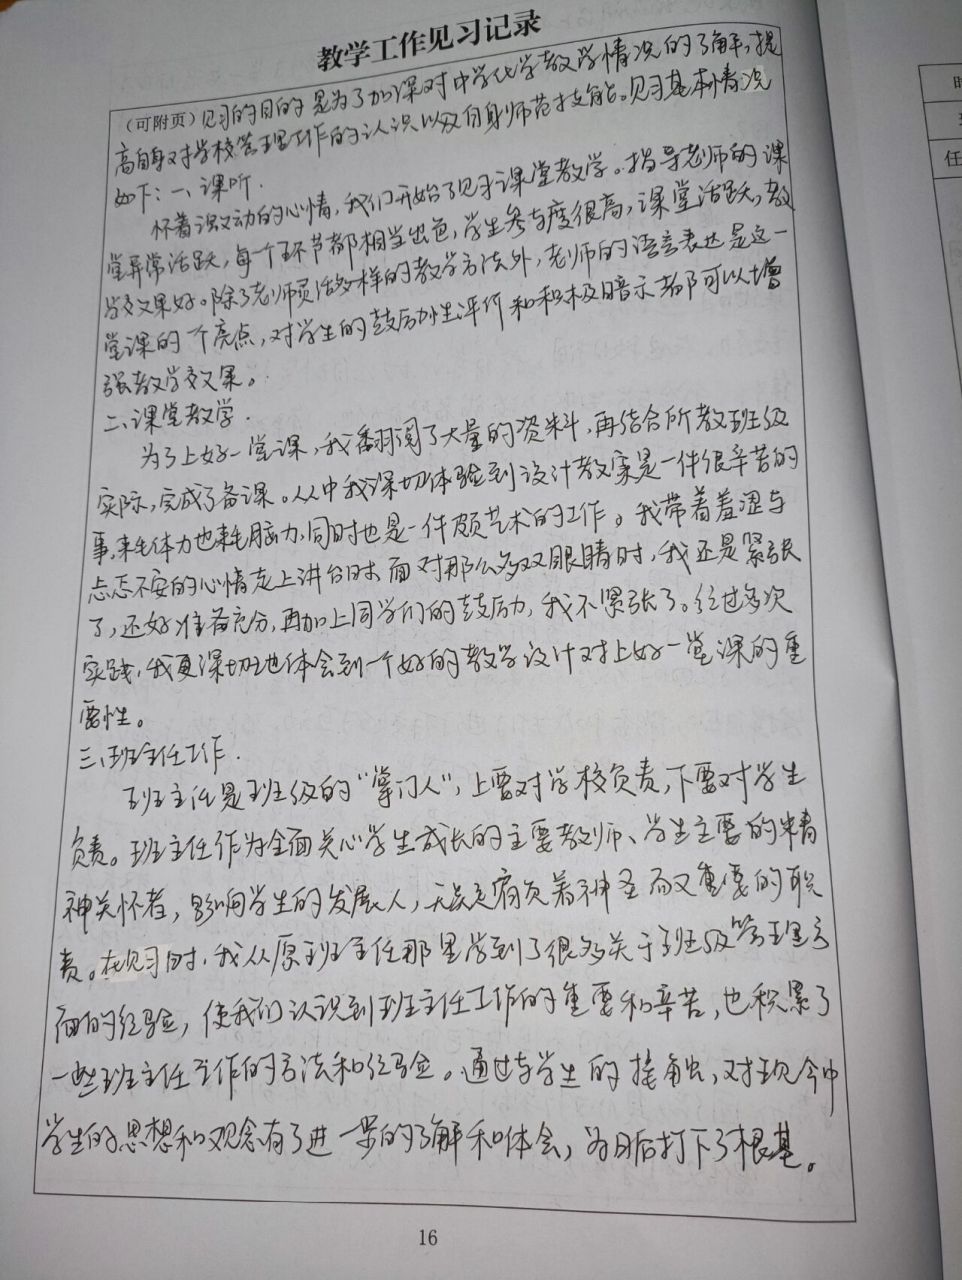 教学工作见习记录
（可附页）见习的目的是为了加深对中学化学教学情况的了解，提
高自身对学校管理工作的认识以及自身师范技能。见习基本情况
如下：一、课听．
怀着激动的心情，我们开始了见习课堂教学。指导老师的课
堂异常活跃，每个环节都相当出色，学生参与度很高，课堂活跃，教
学效果好。除了老师灵活多样的教学方法外，老师的语言表达是这一
堂课的一个亮点，对学生的鼓励性评价和积极暗示都可以增
强教学效果。
二、课堂教学．
为了上好一堂课，我翻阅了大量的资料，再结合所教班级
实际，完成了备课。从中我深切体验到设计教案是一件很辛苦的
事，耗体力也耗脑力，同时也是一件颇艺术的工作。我带着羞涩与
忐忑不安的心情走上讲台时，面对那么多双眼睛时，我还是紧张
了，还好准备充分，再加上同学们的鼓励，我不紧张了。经过多次
实践，我更深切地体会到一个好的教学设计对上好一堂课的重
要性。
三、班主任工作．
班主任是班级的“掌门人”，上要对学校负责，下要对学生
负责。班主任作为全面关心学生成长的主要教师、学生主要的精
神关怀者，影响学生的发展人，无疑是肩负着神圣而又重要的职
责。在见习时，我从原班主任那里学到了很多关于班级管理方
面的经验，使我们认识到班主任工作的重要和辛苦，也积累了
一些班主任工作的方法和经验。通过与学生的接触，对现今中
学生的思想和观念有了进一步的了解和体会，为日后打下了根基。
16
任